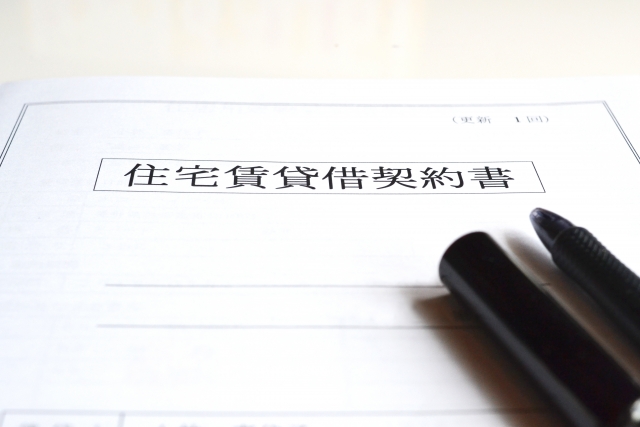 （更新　1回）
住宅賃貸借契約書